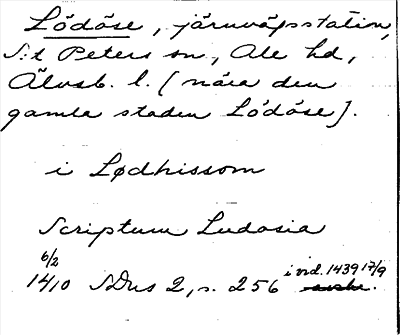 Lödöse, järnvägsstation,
S:t Peters sn, Ale hd,
Älvsb. l. [nära den
gamla staden Lödöse].
i Lødhissom
Scriptum Ludosia
6/2
1410 SDns 2, s. 256 i vid. 1439 17/9